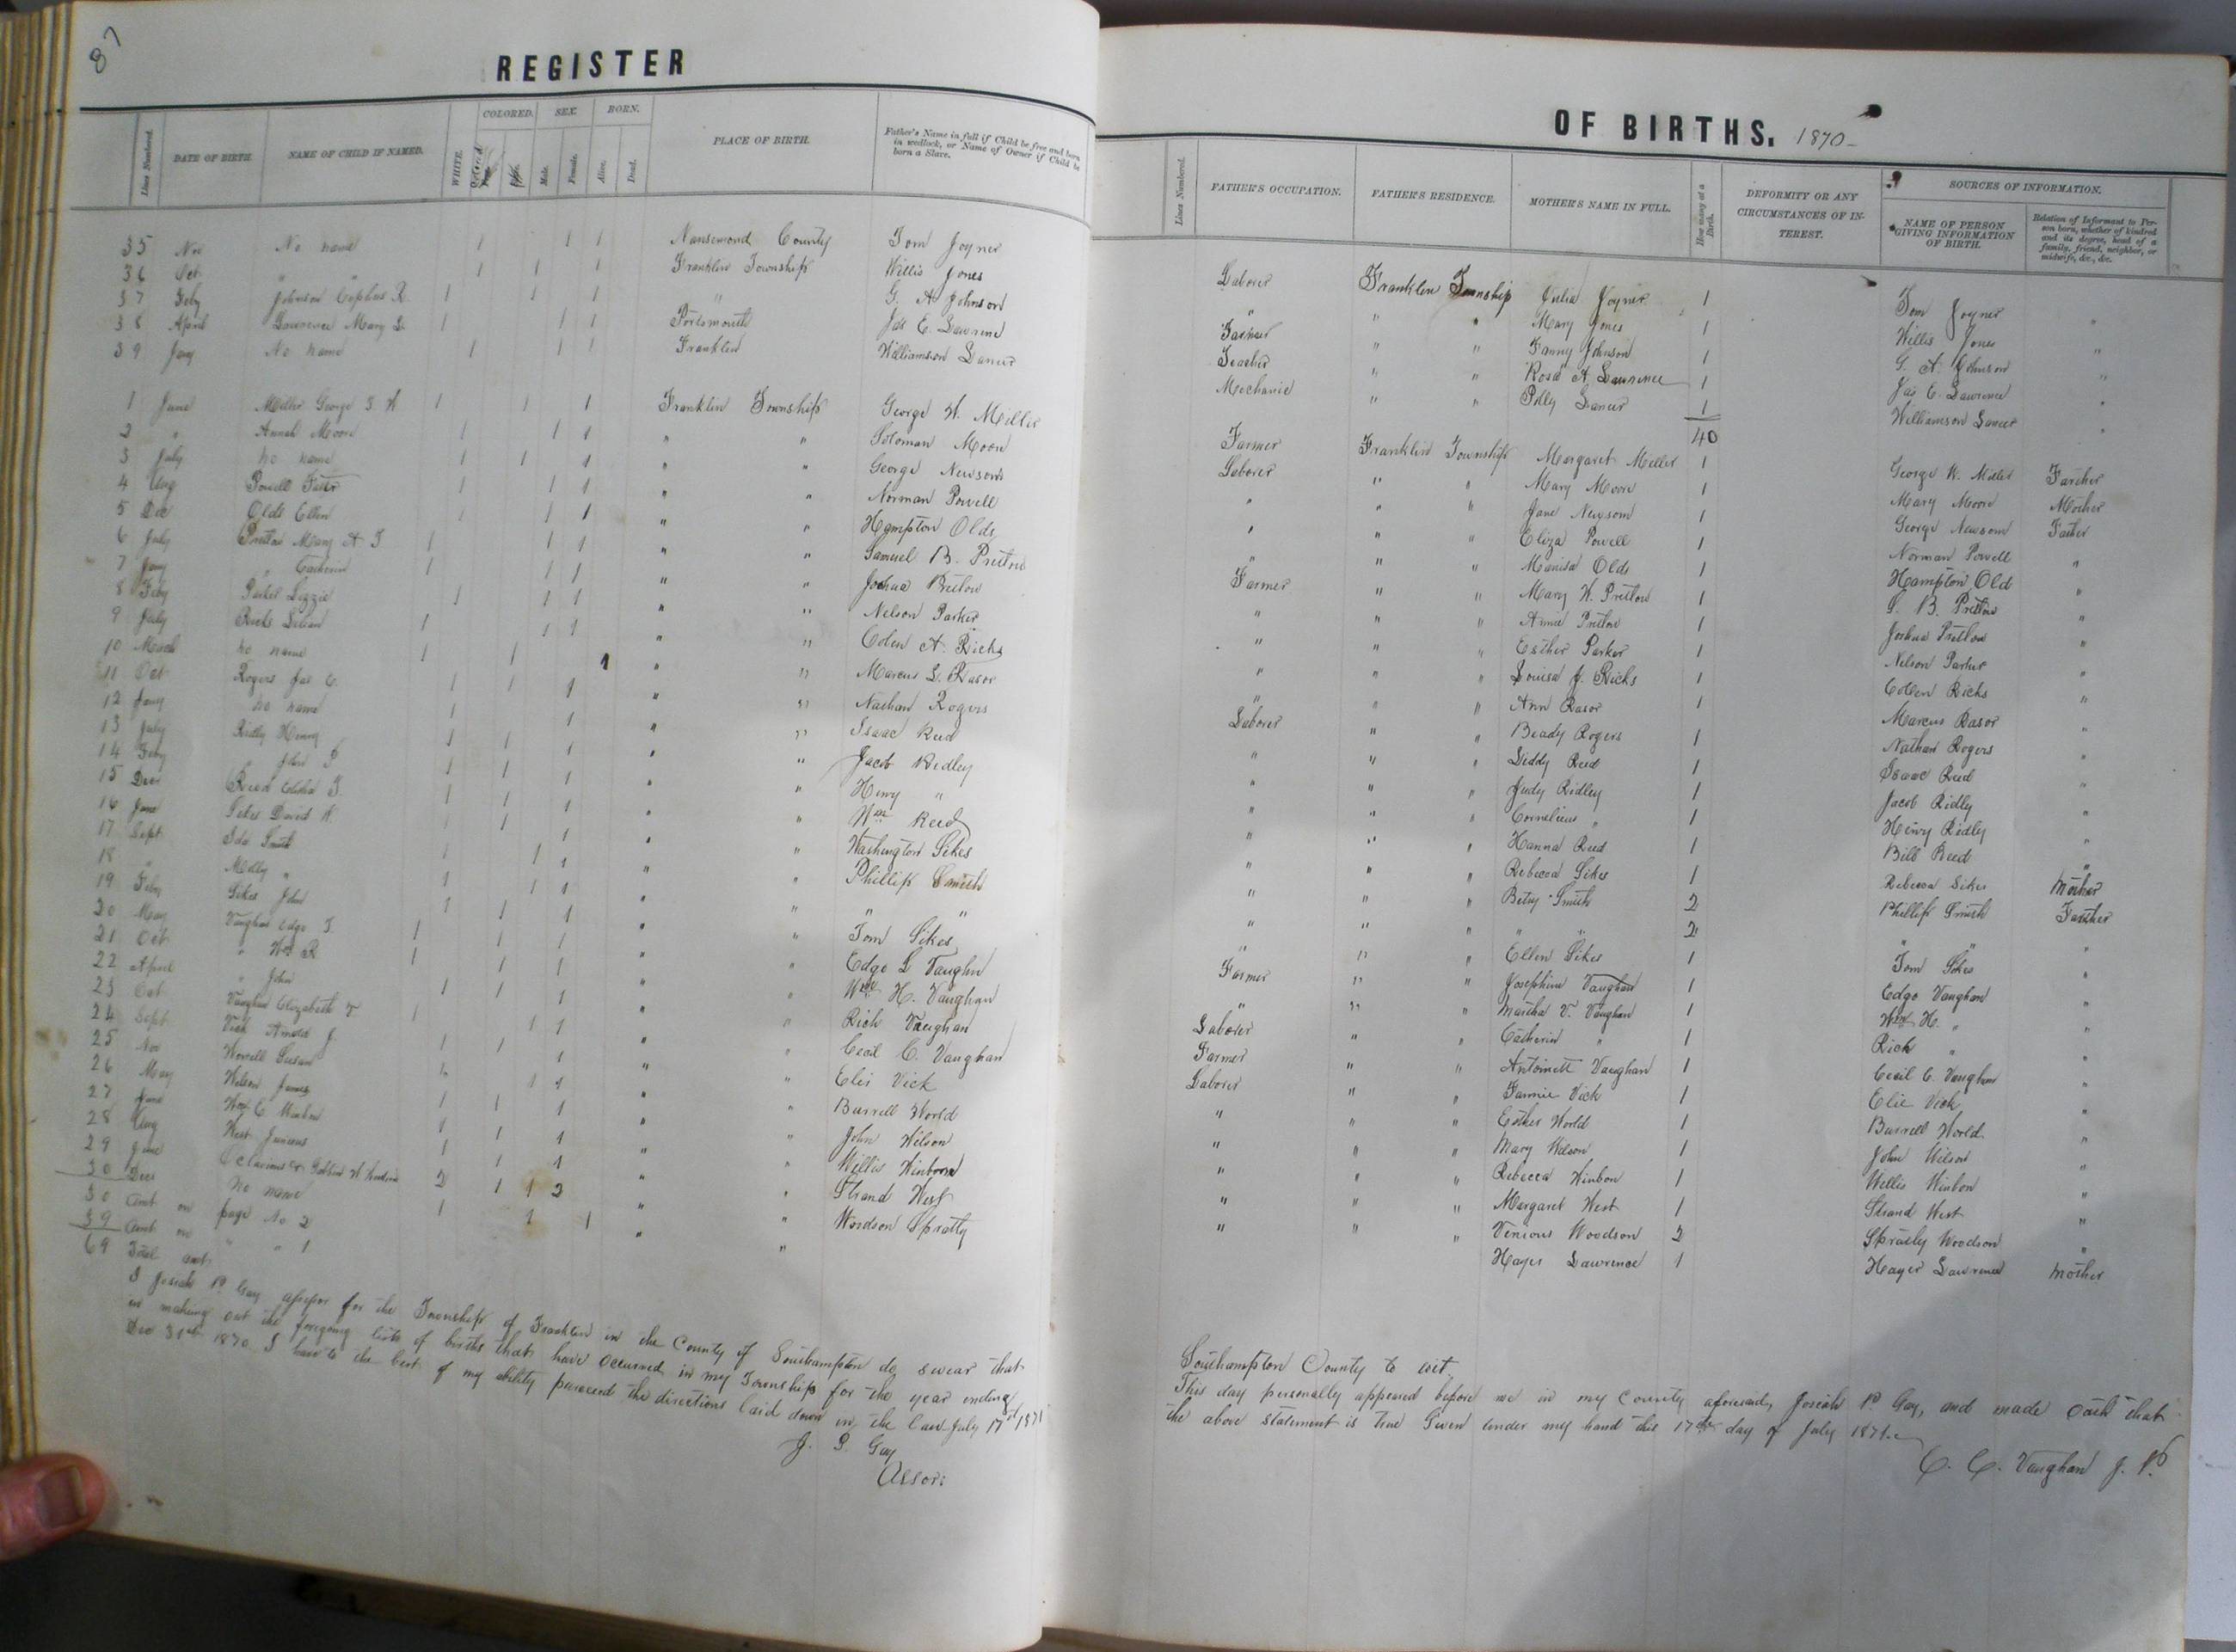 87
REGISTER
Lines Numbered. DATE OF BIRTH NAME OF CHILD IF NAMED. WHITE. COLORED. SEX. Male. Female. BORN. Alive. Dead. PLACE OF BIRTH. Father's Name in full if Child be free and born in wedlock, or Name of Owner if Child be born a Slave.
35 Nov No name 1 1 1 Nansemond County Tom Joyner
36 Oct " " 1 1 1 Franklin Township Willis Jones
37 Feby Johnson Cephus R. 1 1 1 " G. A. Johnson
38 April Lawrence Mary L. 1 1 1 Portsmouth Jas E. Lawrence
39 Jany No name 1 1 1 Franklin Williamson Lancer
1 June Miller George T. H 1 1 1 Franklin Township George W. Miller
2 " Annah Moore 1 1 1 " " Soloman Moon
3 July no name 1 1 1 " " George Newsom
4 Aug Powell 1 1 1 " " Norman Powell
5 Dec Olds Ellen 1 1 1 " " Hampton Olds
6 July Pretlow Mary A T 1 1 1 " " Samuel B. Pretlow
7 Jany " Catherin 1 1 1 " " Joshua Pretlow
8 Feby Parker Lizzie 1 1 1 " " Nelson Parker
9 July Ricks Lilian 1 1 1 " " Colen A. Ricks
10 March no name 1 1 1 " " Marcus L. Rasor
11 Oct Rogers Jas C. 1 1 1 " " Nathan Rogers
12 Jany no name 1 1 " " Isaac Reed
13 July Ridly Henry 1 1 1 " " Jacob Ridley
14 Feby " John P 1 1 1 " " Henry "
15 Dec Reed T. 1 1 1 " " Wm Reed
16 June Sikes David W. 1 1 1 " " Washington Sikes
17 Sept Ida Smith 1 1 1 " " Phillip Smith
18 " Molly " 1 1 1 " " " "
19 Feby Sikes John 1 1 1 " " Tom Sikes
20 May Vaughan Edgo T. 1 1 1 " " Edgo L Vaughn
21 Oct " Wm R 1 1 1 " " Wm H. Vaughan
22 April " John 1 1 1 " " Rich Vaughan
23 Oct Vaughan Elizabeth T. 1 1 1 " " Cecil C. Vaughan
24 Sept Vick Arnold J. 1 1 1 " " Elis Vick
25 Nov Worrell Susan 1 1 1 " " Burrell World
26 May Wilson James 1 1 1 " " John Wilson
27 June Wm C Winbon 1 1 1 " " Willis Winborn
28 Aug West Junious 1 1 1 " " Strand West
29 June 2 1 1 2 " " Woodson Spratly
30 Dec no name 1 1 1 " "
30 Amt on page No 2
39 Amt on " " 1
69 Total amt
I Josiah P. Gay assessor for the Township of Franklin in the County of Southampton do swear that
in making out the foregoing lists of births that have occurred in my Township for the year ending
Dec 31st 1870 I have to the best of my ability pursued the directions laid down in the law July 17th 1871
J. P. Gay
Assor.
OF BIRTHS. 1870-
Lines Numbered. FATHER'S OCCUPATION. FATHER'S RESIDENCE. MOTHER'S NAME IN FULL. How many at a Birth. DEFORMITY OR ANY CIRCUMSTANCES OF INTEREST. SOURCES OF INFORMATION. NAME OF PERSON GIVING INFORMATION OF BIRTH. Relation of Informant to Person born, whether of kindred and its degree, head of a family, friend, neighbor, or midwife, &c., &c.
Laborer Franklin Township Julia Joyner 1 Tom Joyner "
" " " Mary Jones 1 Willis Jones "
Farmer " " Fanny Johnson 1 G. A. Johnson "
Teacher " " Rosa A. Lawrence 1 Jas E. Lawrence "
Mechanic " " Polly Lancer 1 Williamson Lancer "
40
Farmer Franklin Township Margaret Miller 1 George W. Miller Farther
Laborer " " Mary Moore 1 Mary Moore Mother
" " " Jane Newsom 1 George Newsom Father
" " " Eliza Powell 1 Norman Powell "
" " " Manisa Olds 1 Hampton Old "
Farmer " " Mary W. Pretlow 1 S. B. Pretlow "
" " " Annie Pretlow 1 Joshua Pretlow "
" " " Esther Parker 1 Nelson Parker "
" " " Louisa J. Ricks 1 Collen Ricks "
" " " Ann Rasor 1 Marcus Rasor "
Laborer " " Beady Rogers 1 Nathan Rogers "
" " " Liddy Reed 1 Isaac Reed "
" " " Judy Ridley 1 Jacob Ridly "
" " " Cornelious " 1 Henry Ridley "
" " " Hanna Reed 1 Bill Reed "
" " " Rebecca Sikes 1 Rebecca Sikes Mother
" " " Betsy Smith 2 Phillip Smith Farther
" " " " " 2 " " "
" " " Ellen Sikes 1 Tom Sikes "
Farmer " " Josephine Vaughan 1 Edgo Vaughan "
" " " Martha V. Vaughan 1 Wm H. " "
Laborer " " Catherin " 1 Rich " "
Farmer " " Antoinett Vaughan 1 Cecil C. Vaughan "
Laborer " " Fannie Vick 1 Elie Vick "
" " " Esther World 1 Burrell World "
" " " Mary Wilson 1 John Wilson "
" " " Rebecca Winbon 1 Willis Winbon "
" " " Margaret West 1 Strand West "
" " " Venious Woodson 2 Spratly Woodson "
Hayes Lawrence 1 Hayer Lawrence Mother
Southampton County to wit.
This day personally appeared before me in my County aforesaid, Josiah P. Gay, and made oath that
the above statement is true Given under my hand this 17th day of July 1871.
C. C. Vaughan J. P.